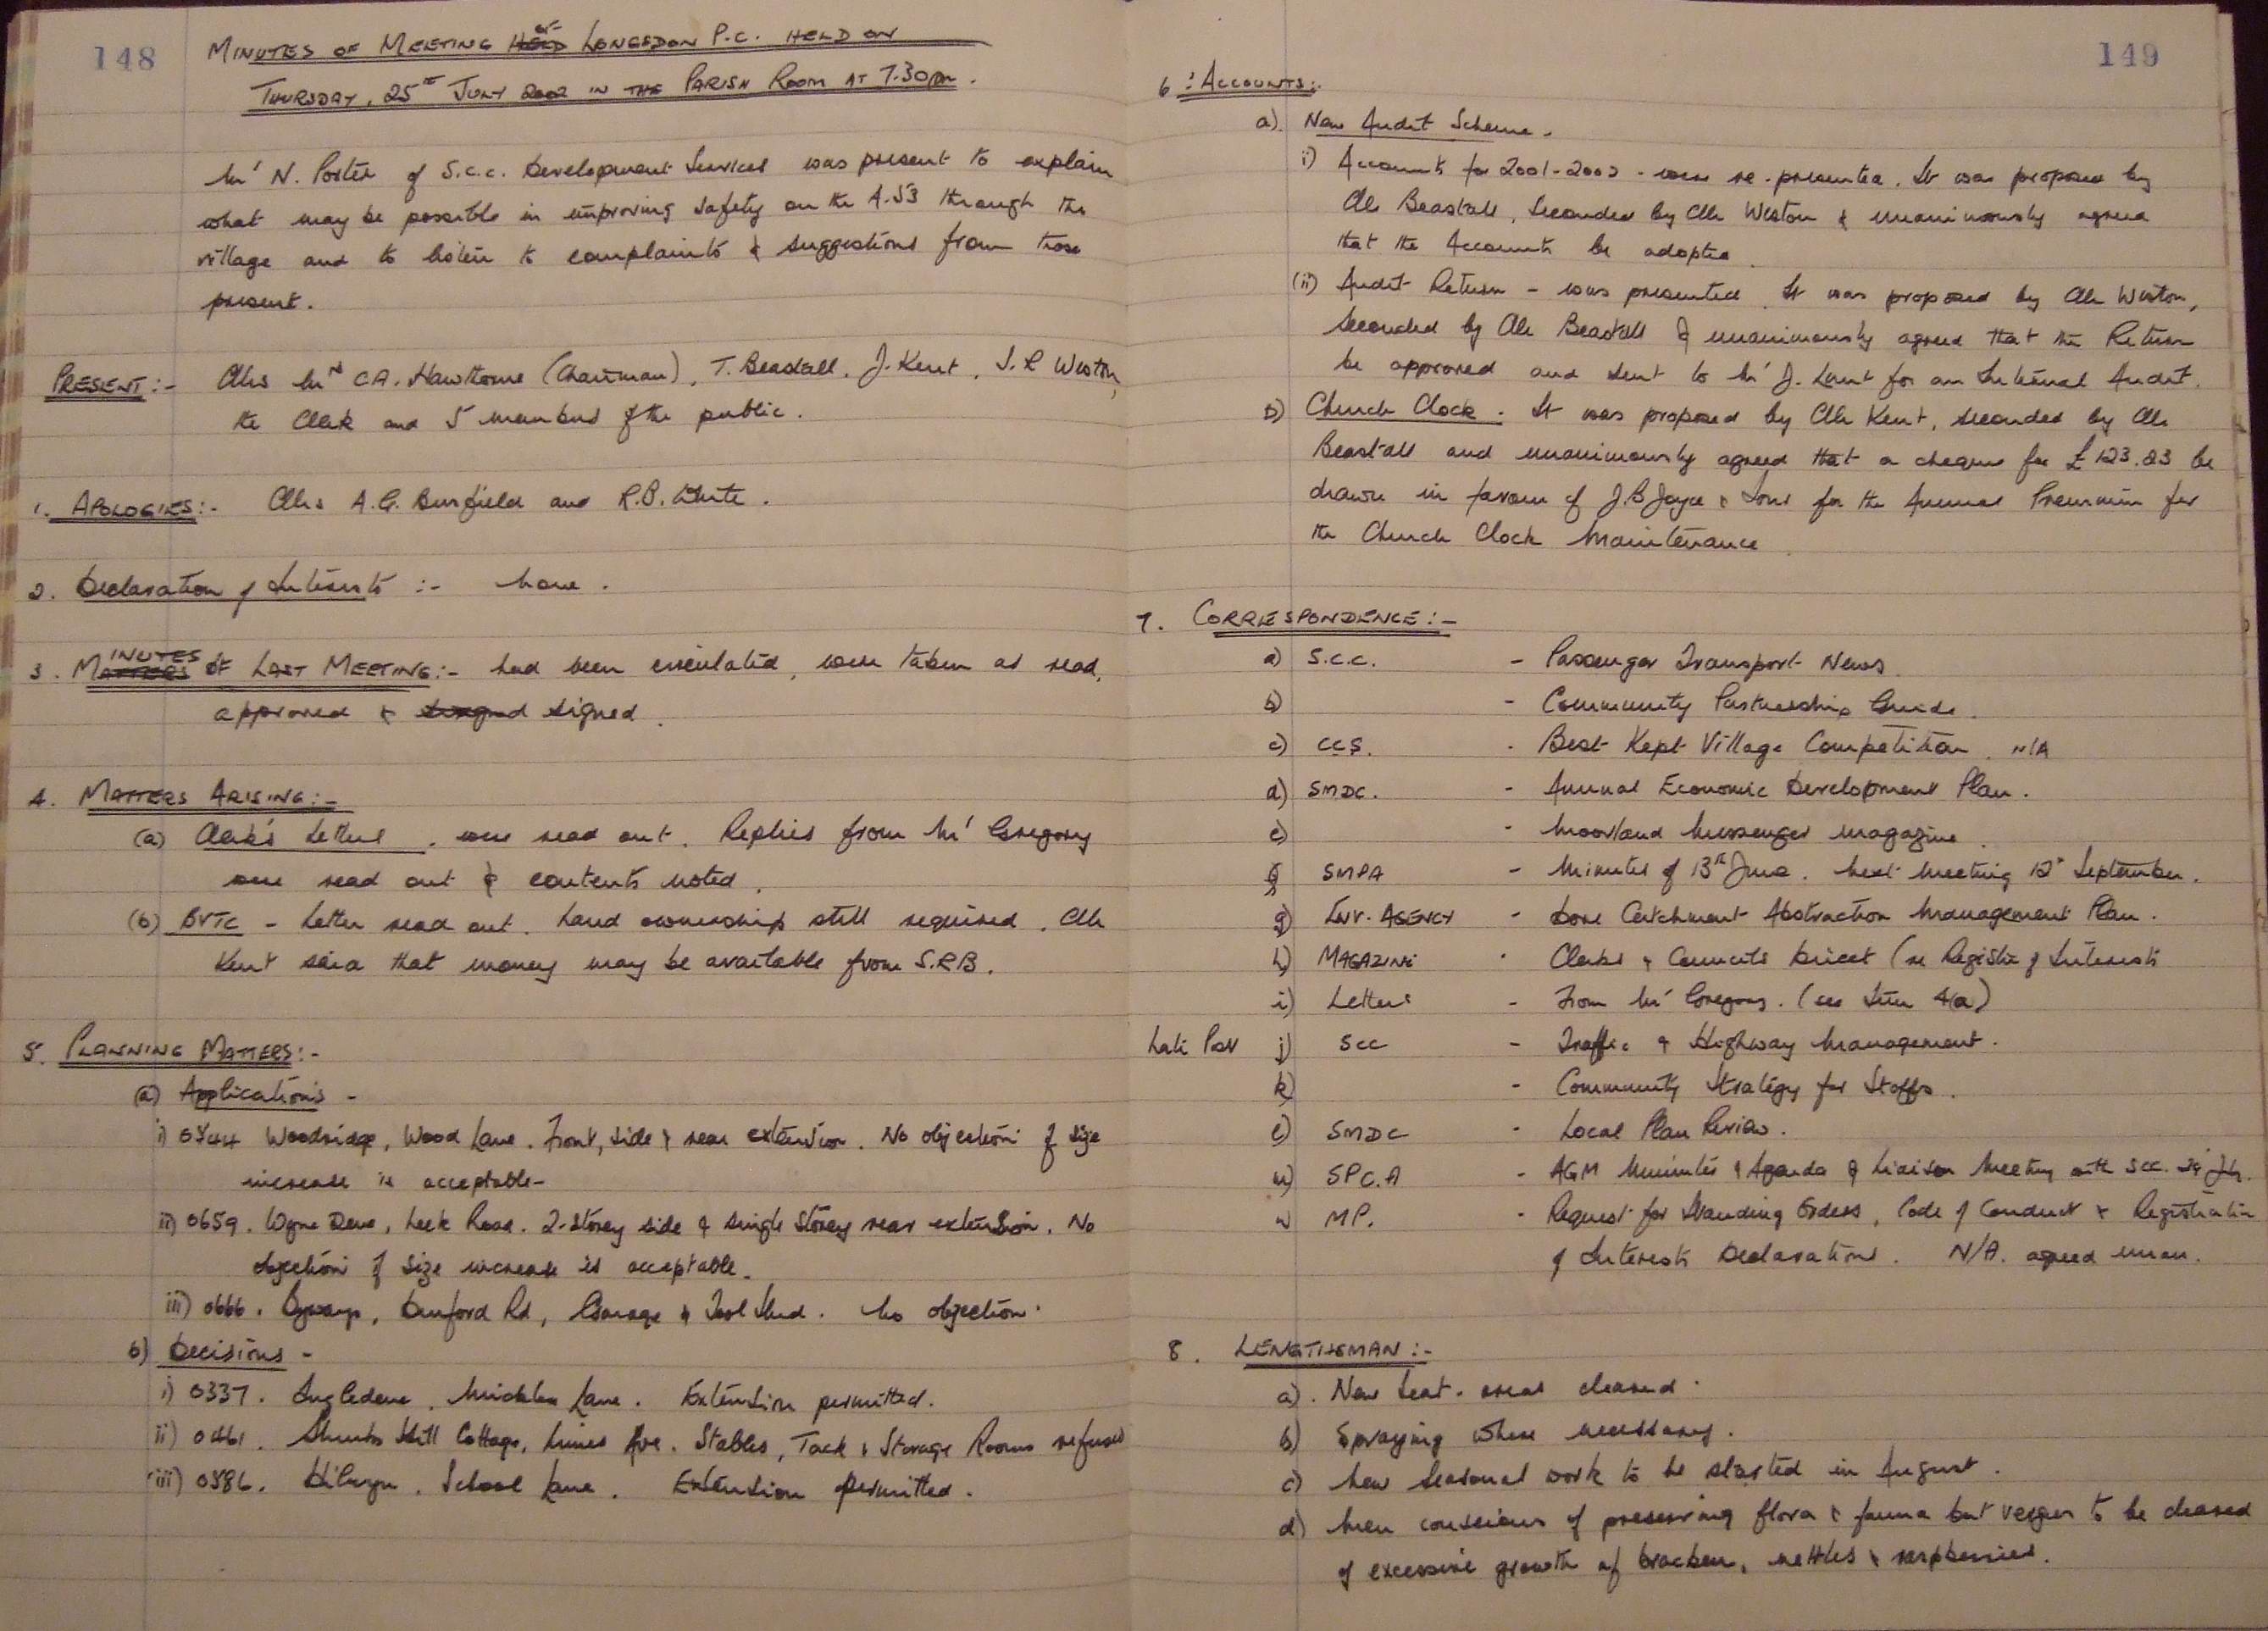 148
MINUTES OF MEETING HELD OF LONGSDON P.C. HELD ON
THURSDAY, 25TH JULY 2002 IN THE PARISH ROOM AT 7.30pm.
Mr N. Porter of S.C.C. Development Services was present to explain
what may be possible in improving safety on the A.53 through the
village and to listen to complaints & suggestions from those
present.
PRESENT:- Cllrs Mrs C.A. Hawthorne (Chairman), T. Beastall, J. Kent, J.R Weston,
the Clerk and 5 members of the public.
1. APOLOGIES:- Cllrs A.G. Burfield and R.B. White.
2. Declaration of Interests :- None.
3. MATTERS MINUTES OF LAST MEETING:- had been circulated, were taken as read,
approved & signed.
4. MATTERS ARISING:-
(a) Clerk's Letters. were read out. Replies from Mr Gregory
were read out & contents noted.
(b) BVTC - Letter read out. Land ownership still required. Cllr
Kent said that money may be available from S.R.B.
5. PLANNING MATTERS:-
(a) Applications -
i) 0544 Woodridge, Wood Lane. Front, side & rear extension. No objection if size
increase is acceptable-
ii) 0659. Wyne Dene, Leek Road. 2-storey side & single storey rear extension. No
objection if size increase is acceptable.
iii) 0666. Denford Rd, Garage & Tool Shed. No objection.
b) Decisions -
i) 0337. Ingledene, Micklea Lane. Extension permitted.
ii) 0461. Hill Cottage, Ave. Stables, Tack & Storage Rooms refused
(iii) 0386. School Lane. Extension permitted.
149
6. ACCOUNTS:-
a). New Audit Scheme.
i) Accounts for 2001-2002 - were re-presented. It was proposed by
Cllr Beastall, Seconded by Cllr Weston & unanimously agreed
that the Accounts be adopted.
(ii) Audit Return - was presented. It was proposed by Cllr Weston,
seconded by Cllr Beastall & unanimously agreed that the Return
be approved and sent to Mr J. Lount for an Internal Audit.
b) Church Clock. It was proposed by Cllr Kent, seconded by Cllr
Beastall and unanimously agreed that a cheque for £123.83 be
drawn in favour of J.B Joyce & Sons for the Annual Premium for
the Church Clock Maintenance.
7. CORRESPONDENCE:-
a) S.C.C. - Passenger Transport News.
b) - Community Partnership Guide.
c) CCS. - Best Kept Village Competition. N/A
d) SMDC. - Annual Economic Development Plan.
e) - Moorland Messenger magazine.
f) SMPA - Minutes of 13th June. Next Meeting 12th September.
g) ENV. AGENCY - Dove Catchment Abstraction Management Plan.
h) MAGAZINE - Clerks & Councils Direct (re Register of Interests
i) Letters - From Mr Gregory. (see Item 4(a)
Late Post j) SCC - Traffic & Highway Management.
k) - Community Strategy for Staffs.
l) SMDC - Local Plan Review.
m) SPC.A - AGM Minutes & Agenda of Liaison Meeting with SCC. 29th July.
n) MP. - Request for Standing Orders, Code of Conduct & Registration
of Interests Declarations. N/A. agreed unan.
8. LENGTHSMAN:-
a). New Seat - areas cleared.
b) Spraying where necessary.
c) New Seasonal work to be started in August.
d) Men conscious of preserving flora & fauna but verges to be cleared
of excessive growth of bracken, nettles & raspberries.